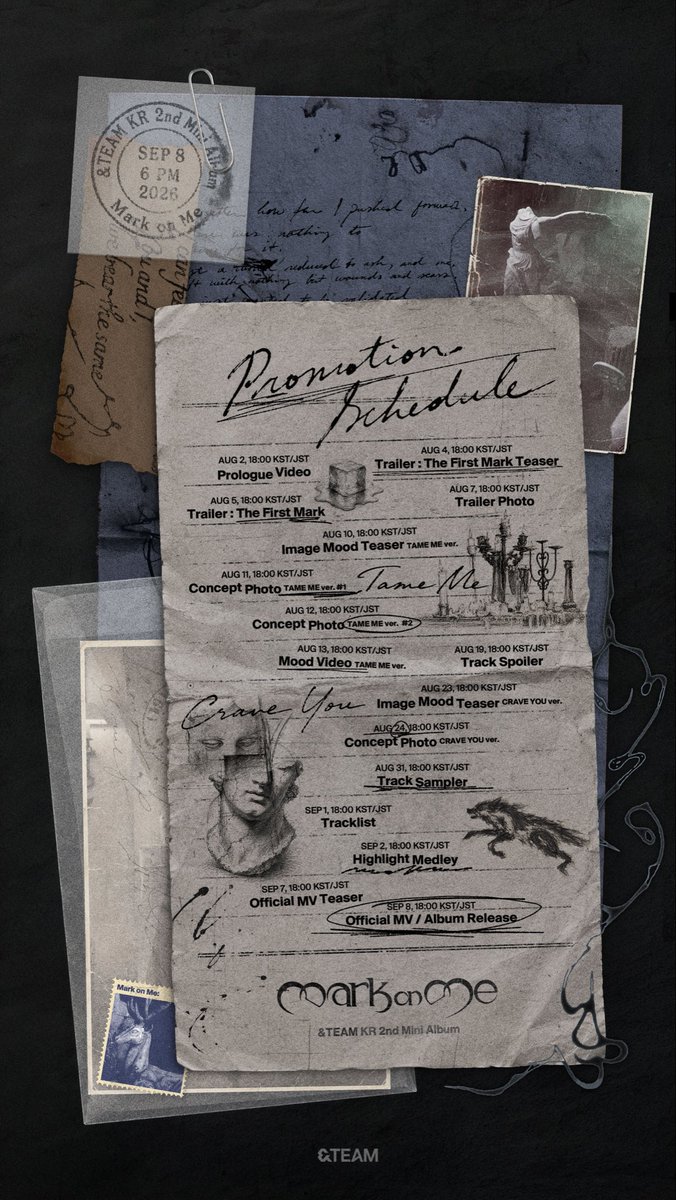 &TEAM KR 2nd Mini Album
SEP 8
6 PM
2026
Mark on Me
how far I pushed forward,
nothing to
reduced to ash, and me
with nothing but wounds and scars
Promotion
Schedule
AUG 2, 18:00 KST/JST
Prologue Video
AUG 4, 18:00 KST/JST
Trailer : The First Mark Teaser
AUG 5, 18:00 KST/JST
Trailer : The First Mark
AUG 7, 18:00 KST/JST
Trailer Photo
AUG 10, 18:00 KST/JST
Image Mood Teaser TAME ME ver.
AUG 11, 18:00 KST/JST
Concept Photo TAME ME ver. #1
Tame Me
AUG 12, 18:00 KST/JST
Concept Photo TAME ME ver. #2
AUG 13, 18:00 KST/JST
Mood Video TAME ME ver.
AUG 19, 18:00 KST/JST
Track Spoiler
Crave You
AUG 23, 18:00 KST/JST
Image Mood Teaser CRAVE YOU ver.
AUG 24, 18:00 KST/JST
Concept Photo CRAVE YOU ver.
AUG 31, 18:00 KST/JST
Track Sampler
SEP 1, 18:00 KST/JST
Tracklist
SEP 2, 18:00 KST/JST
Highlight Medley
SEP 7, 18:00 KST/JST
Official MV Teaser
SEP 8, 18:00 KST/JST
Official MV / Album Release
mark on me
&TEAM KR 2nd Mini Album
Mark on Me:
&TEAM